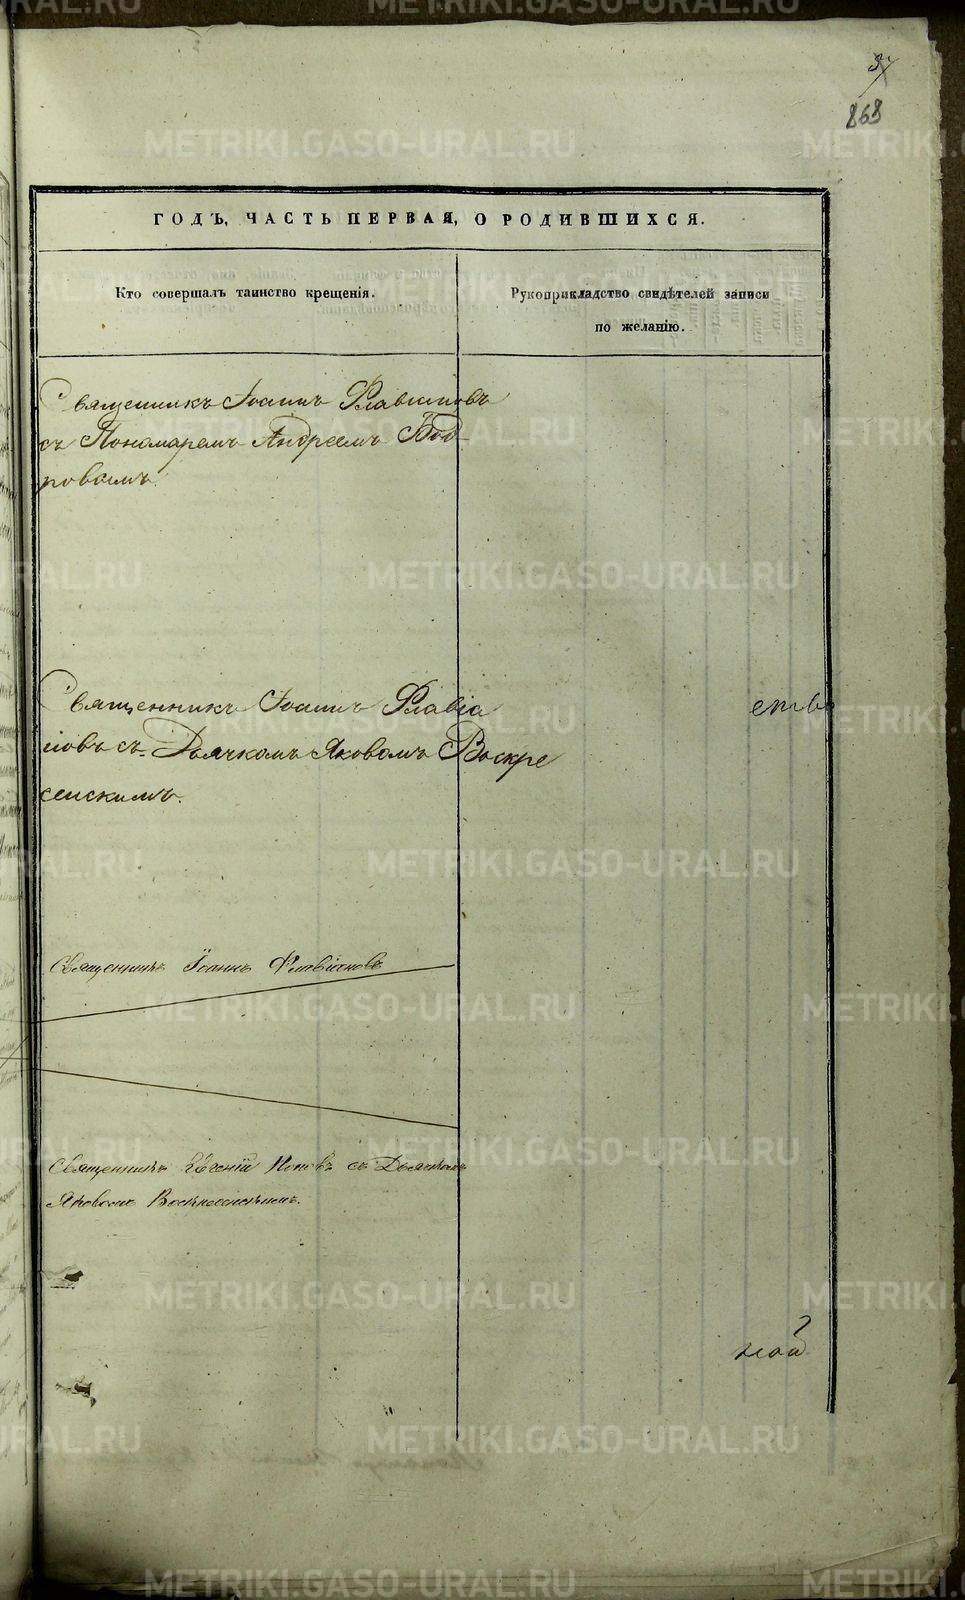 37
868
ГОДЪ, ЧАСТЬ ПЕРВАЯ, О РОДИВШИХСЯ.
Кто совершалъ таинство крещенія.
Рукоприкладство свидѣтелей записи
по желанію.
Священникъ Іоаннъ Флавіановъ
съ Пономаремъ Андреемъ Бод-
ровымъ.
Священникъ Іоаннъ Флавіа
новъ съ Дьячкомъ Яковомъ Воскре
сенскимъ.
ств
Священникъ Іоаннъ Флавіановъ
Священникъ Евгеній Поповъ съ Дьячкомъ
Яковомъ Воскресенскимъ.
ной
METRIKI.GASO-URAL.RU